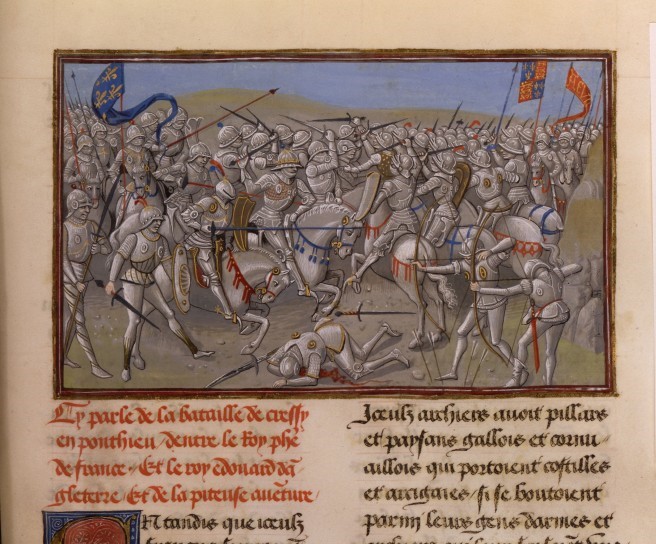 Cy parle de la bataille de cressy
en ponthieu dentre le Roy phe
de france · Et le roy edouard dā
gleterre / Et de la piteuse auēture /
En tandis que iceulz
Jceulz archiers auoit pillars
et paysans gallois et cornu
aillois qui portoient costilles
et arcigaies / si se boutoient
parmi leurs gens darmes et